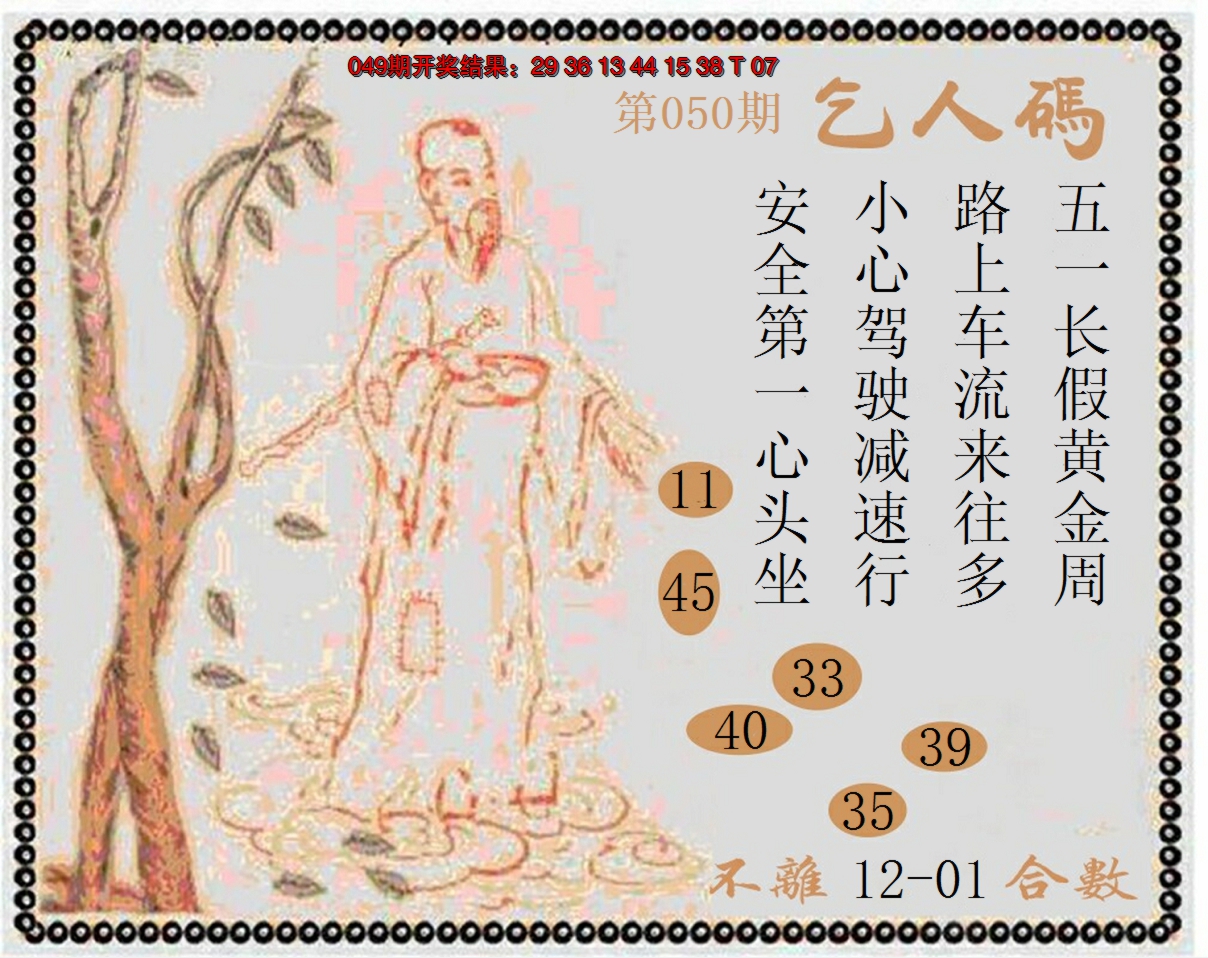 049期开奖结果：29 36 13 44 15 38 T 07
第050期 乞人碼
五一长假黄金周
路上车流来往多
小心驾驶减速行
安全第一心头坐
11
45
33
40
39
35
不離 12-01 合數